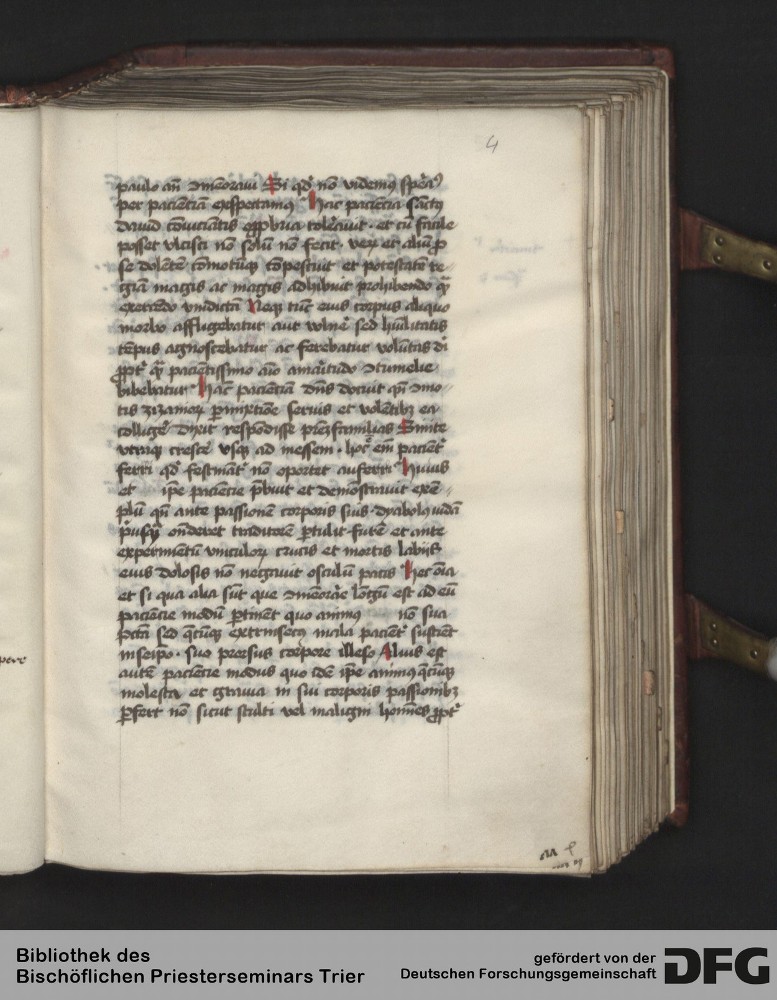 4
paulo an̄ ↄmēoraui Si qd̕ nō videmꝰ spēa⁹
per paciēciā exspectamꝰ Hac paciēcia sāctꝰ
dauid cōuiciātis opp̄bria toler̄auit · et cū facile
posset vlcisci nō solū nō fecit · veꝝ et aliū ꝓ
se dolētē cōmotūqꝫ cōpescuit et potestatē re
giam magis ac magis adhibuit prohibendo qͣꝫ
exercēdo vindictā Neqꝫ tūc eius corpus aliquo
morbo affligebatur aut volne͛ sed hūilitatis
tēpus agnoscebatur ac ferebatur volūtas di̅
ꝓpt͛ qͣꝫ paciētissimo aīo amaritudo ↄtumelie
bibebatur Hāc paciēciā dn̄s docuit qn̄ ↄmo
tis zizanioꝝ ꝑmixtiōe seruis et volētibꝫ ea
collige͛ dixit respōdisse pr̄ēfamilias Sinite
vtraqꝫ cresce͛ vsqꝫ ad messem · hoc em̄ paciēt͛
ferri qd̕ festināt͛ nō oportet auferri Huius
et ip̄e paciēcie p̄buit et demōstrauit exē
plū qn̄ ante passionē corporis sui dyabolū iudā
p̄usqͣꝫ ondēret traditorē ꝑtulit furē et ante
experimētū vinculoꝝ crucis et mortis labijs
eius dolosis nō negauit osculū pacis Hec oīa
et si qua alia sūt que ↄmēorāe lōgū est ad eū
paciēcie modū ꝑtinēt quo animꝰ nō sua
pctā sed qͣcūqꝫ extrinsecꝰ mala paciēt͛ sustīet
in seip̄o · suo prorsus corpore illeso Alius est
autē paciēcie modus quo idē ip̄e animꝰ qͣcūqꝫ
molesta et grauia in sui corporis passionibꝫ
ꝑfert nō sicut stulti vel maligni hoīes ꝓpt͛
Bibliothek des
Bischöflichen Priesterseminars Trier
gefördert von der
Deutschen Forschungsgemeinschaft
DFG